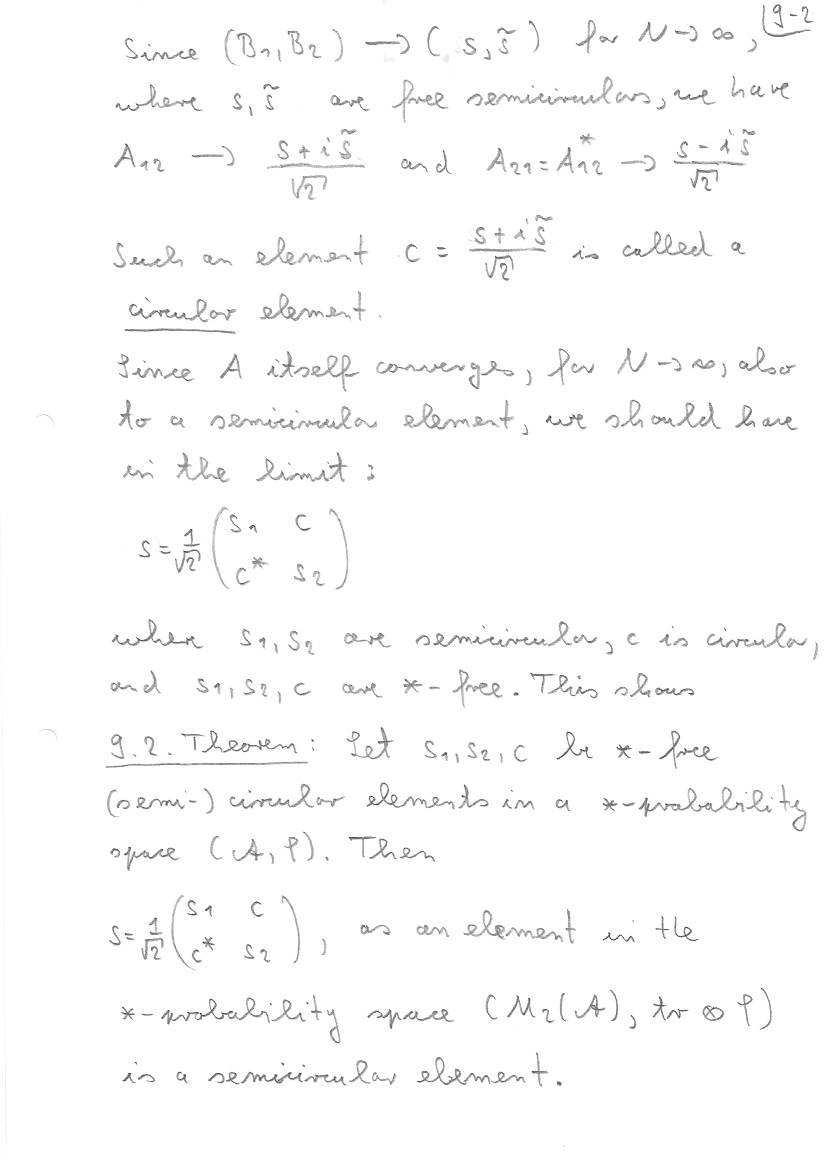 9-2
Since (B₁, B₂) → (s, s̃) for N → ∞,
where s, s̃ are free semicirculars, we have
A₁₂ → (s + i s̃)/√2 and A₂₁ = A₁₂* → (s - i s̃)/√2
Such an element c = (s + i s̃)/√2 is called a
circular element.
Since A itself converges, for N → ∞, also
to a semicircular element, we should have
in the limit:
s = 1/√2 ( s₁ c
c* s₂ )
where s₁, s₂ are semicircular, c is circular,
and s₁, s₂, c are *-free. This shows
9.2. Theorem: Let s₁, s₂, c be *-free
(semi-) circular elements in a *-probability
space (A, φ). Then
s = 1/√2 ( s₁ c
c* s₂ ), as an element in the
*-probability space (M₂(A), tr ⊗ φ)
is a semicircular element.